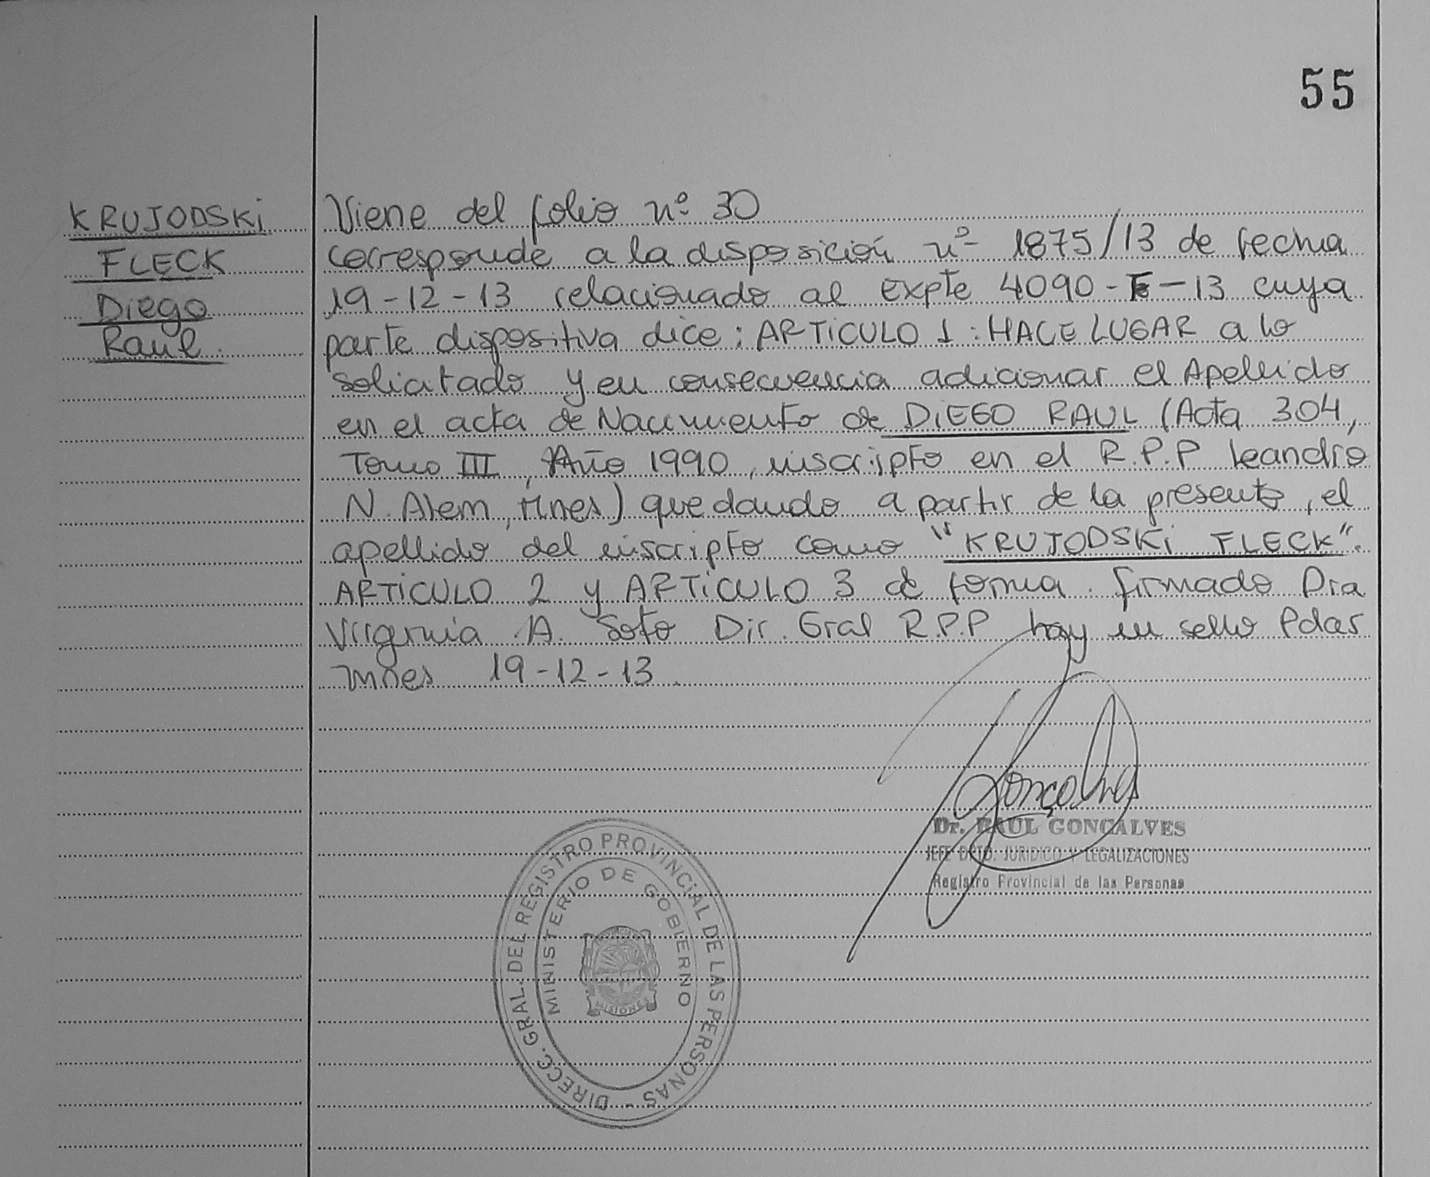 55
KRUJODSKi
FLECK
Diego
Raul.
Viene del folio nº 30
corresponde a la disposición nº 1875/13 de fecha
19-12-13 relacionado al expte 4090-F-13 cuya
parte dispositiva dice: ARTiCULO 1: HACE LUGAR a lo
solicitado y en consecuencia adicionar el Apellido
en el acta de Nacimiento de DiEGO RAUL (Acta 304,
Tomo III, Año 1990, inscripto en el R.P.P Leandro
N. Alem, Mnes) quedando a partir de la presente, el
apellido del inscripto como "KRUJODSKi FLECK".
ARTiCULO 2 y ARTiCULO 3 de forma. firmado Dra
Virginia A. Soto Dir. Gral R.P.P hay un sello Pdas
Mnes 19-12-13.
Gonçalves
Dr. RAUL GONCALVES
JEFE DPTO. JURIDICO Y LEGALIZACIONES
Registro Provincial de las Personas
DIRECC. GRAL. DEL REGISTRO PROVINCIAL DE LAS PERSONAS -
MINISTERIO DE GOBIERNO
MISIONES